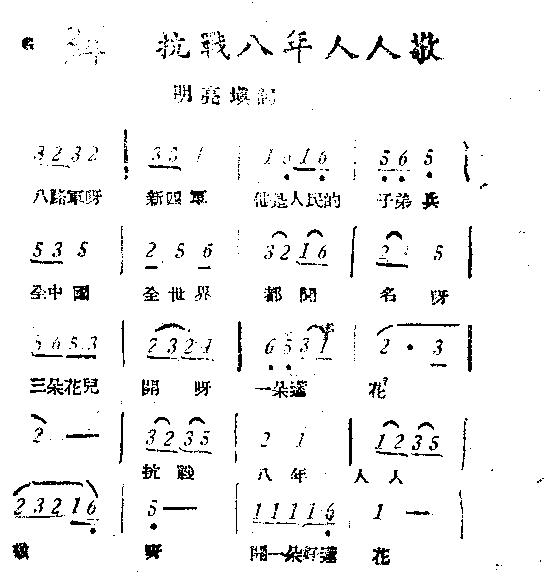 G 2/4 抗戰八年人人敬
明亮填詞
3 2 3 2 | 3 5 1 | 1 5 1 6 | 5 6 5 |
八路軍呀 新四軍 他是人民的 子弟兵
5 3 5 | 2 5 6 | 3 2 1 6 | 2 5 |
全中國 全世界 都聞 名呀
5 6 5 3 | 2 3 2 1 | 6 5 3 1 | 2 · 3 |
三朵花兒 開呀 一朵蓮 花
2 — | 3 2 3 5 | 2 1 | 1 2 3 5 |
抗戰 八年 人人
2 3 2 1 6 | 5 — | 1 1 1 1 6 | 1 — |
敬 呀 開一朵好蓮 花